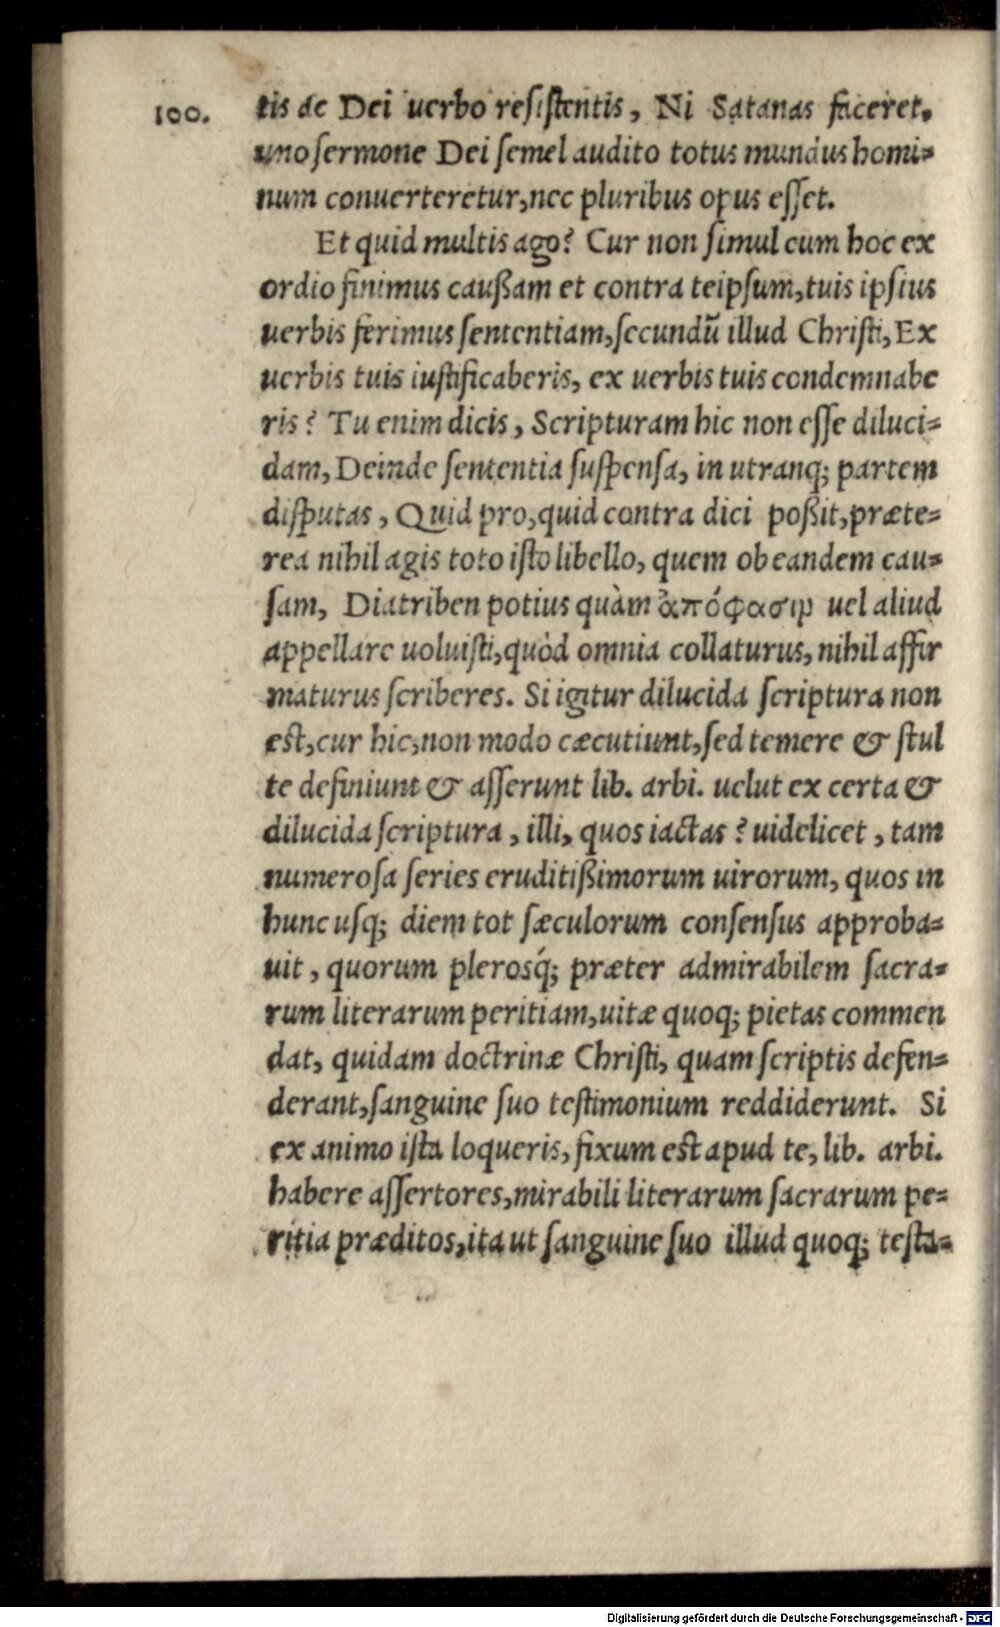 100.
tis de Dei uerbo resistentis, Ni Satanas faceret,
uno sermone Dei semel audito totus mundus homi=
num conuerteretur, nec pluribus opus esset.
Et quid multis ago? Cur non simul cum hoc ex
ordio finimus caußam et contra teipsum, tuis ipsius
uerbis ferimus sententiam, secundũ illud Christi, Ex
uerbis tuis iustificaberis, ex uerbis tuis condemnabe
ris? Tu enim dicis, Scripturam hic non esse diluci=
dam, Deinde sententia suspensa, in utranq; partem
disputas, Quid pro, quid contra dici poßit, præte=
rea nihil agis toto isto libello, quem ob eandem cau=
sam, Diatriben potius quàm ἀπόφασιμ uel aliud
appellare uoluisti, quòd omnia collaturus, nihil affir
maturus scriberes. Si igitur dilucida scriptura non
est, cur hic, non modo cæcutiunt, sed temere & stul
te definiunt & asserunt lib. arbi. uelut ex certa &
dilucida scriptura, illi, quos iactas? uidelicet, tam
numerosa series eruditißimorum uirorum, quos in
hunc usq; diem tot sæculorum consensus approba=
uit, quorum plerosq́; præter admirabilem sacra=
rum literarum peritiam, uitæ quoq; pietas commen
dat, quidam doctrinæ Christi, quam scriptis defen=
derant, sanguine suo testimonium reddiderunt. Si
ex animo ista loqueris, fixum est apud te, lib. arbi.
habere assertores, mirabili literarum sacrarum pe=
ritia præditos, ita ut sanguine suo illud quoq; testa=
Digitalisierung gefördert durch die Deutsche Forschungsgemeinschaft - DFG